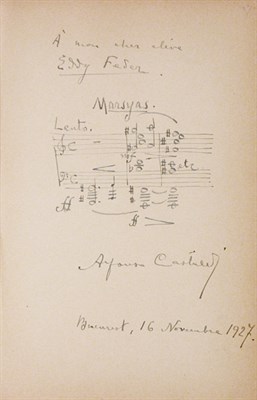 À mon cher élève
Eddy Fader.
Marsyas.
Lento.
C
etc
C
ff
ff
Alfonso Castaldi
Bucarest, 16 Novembre 1927.